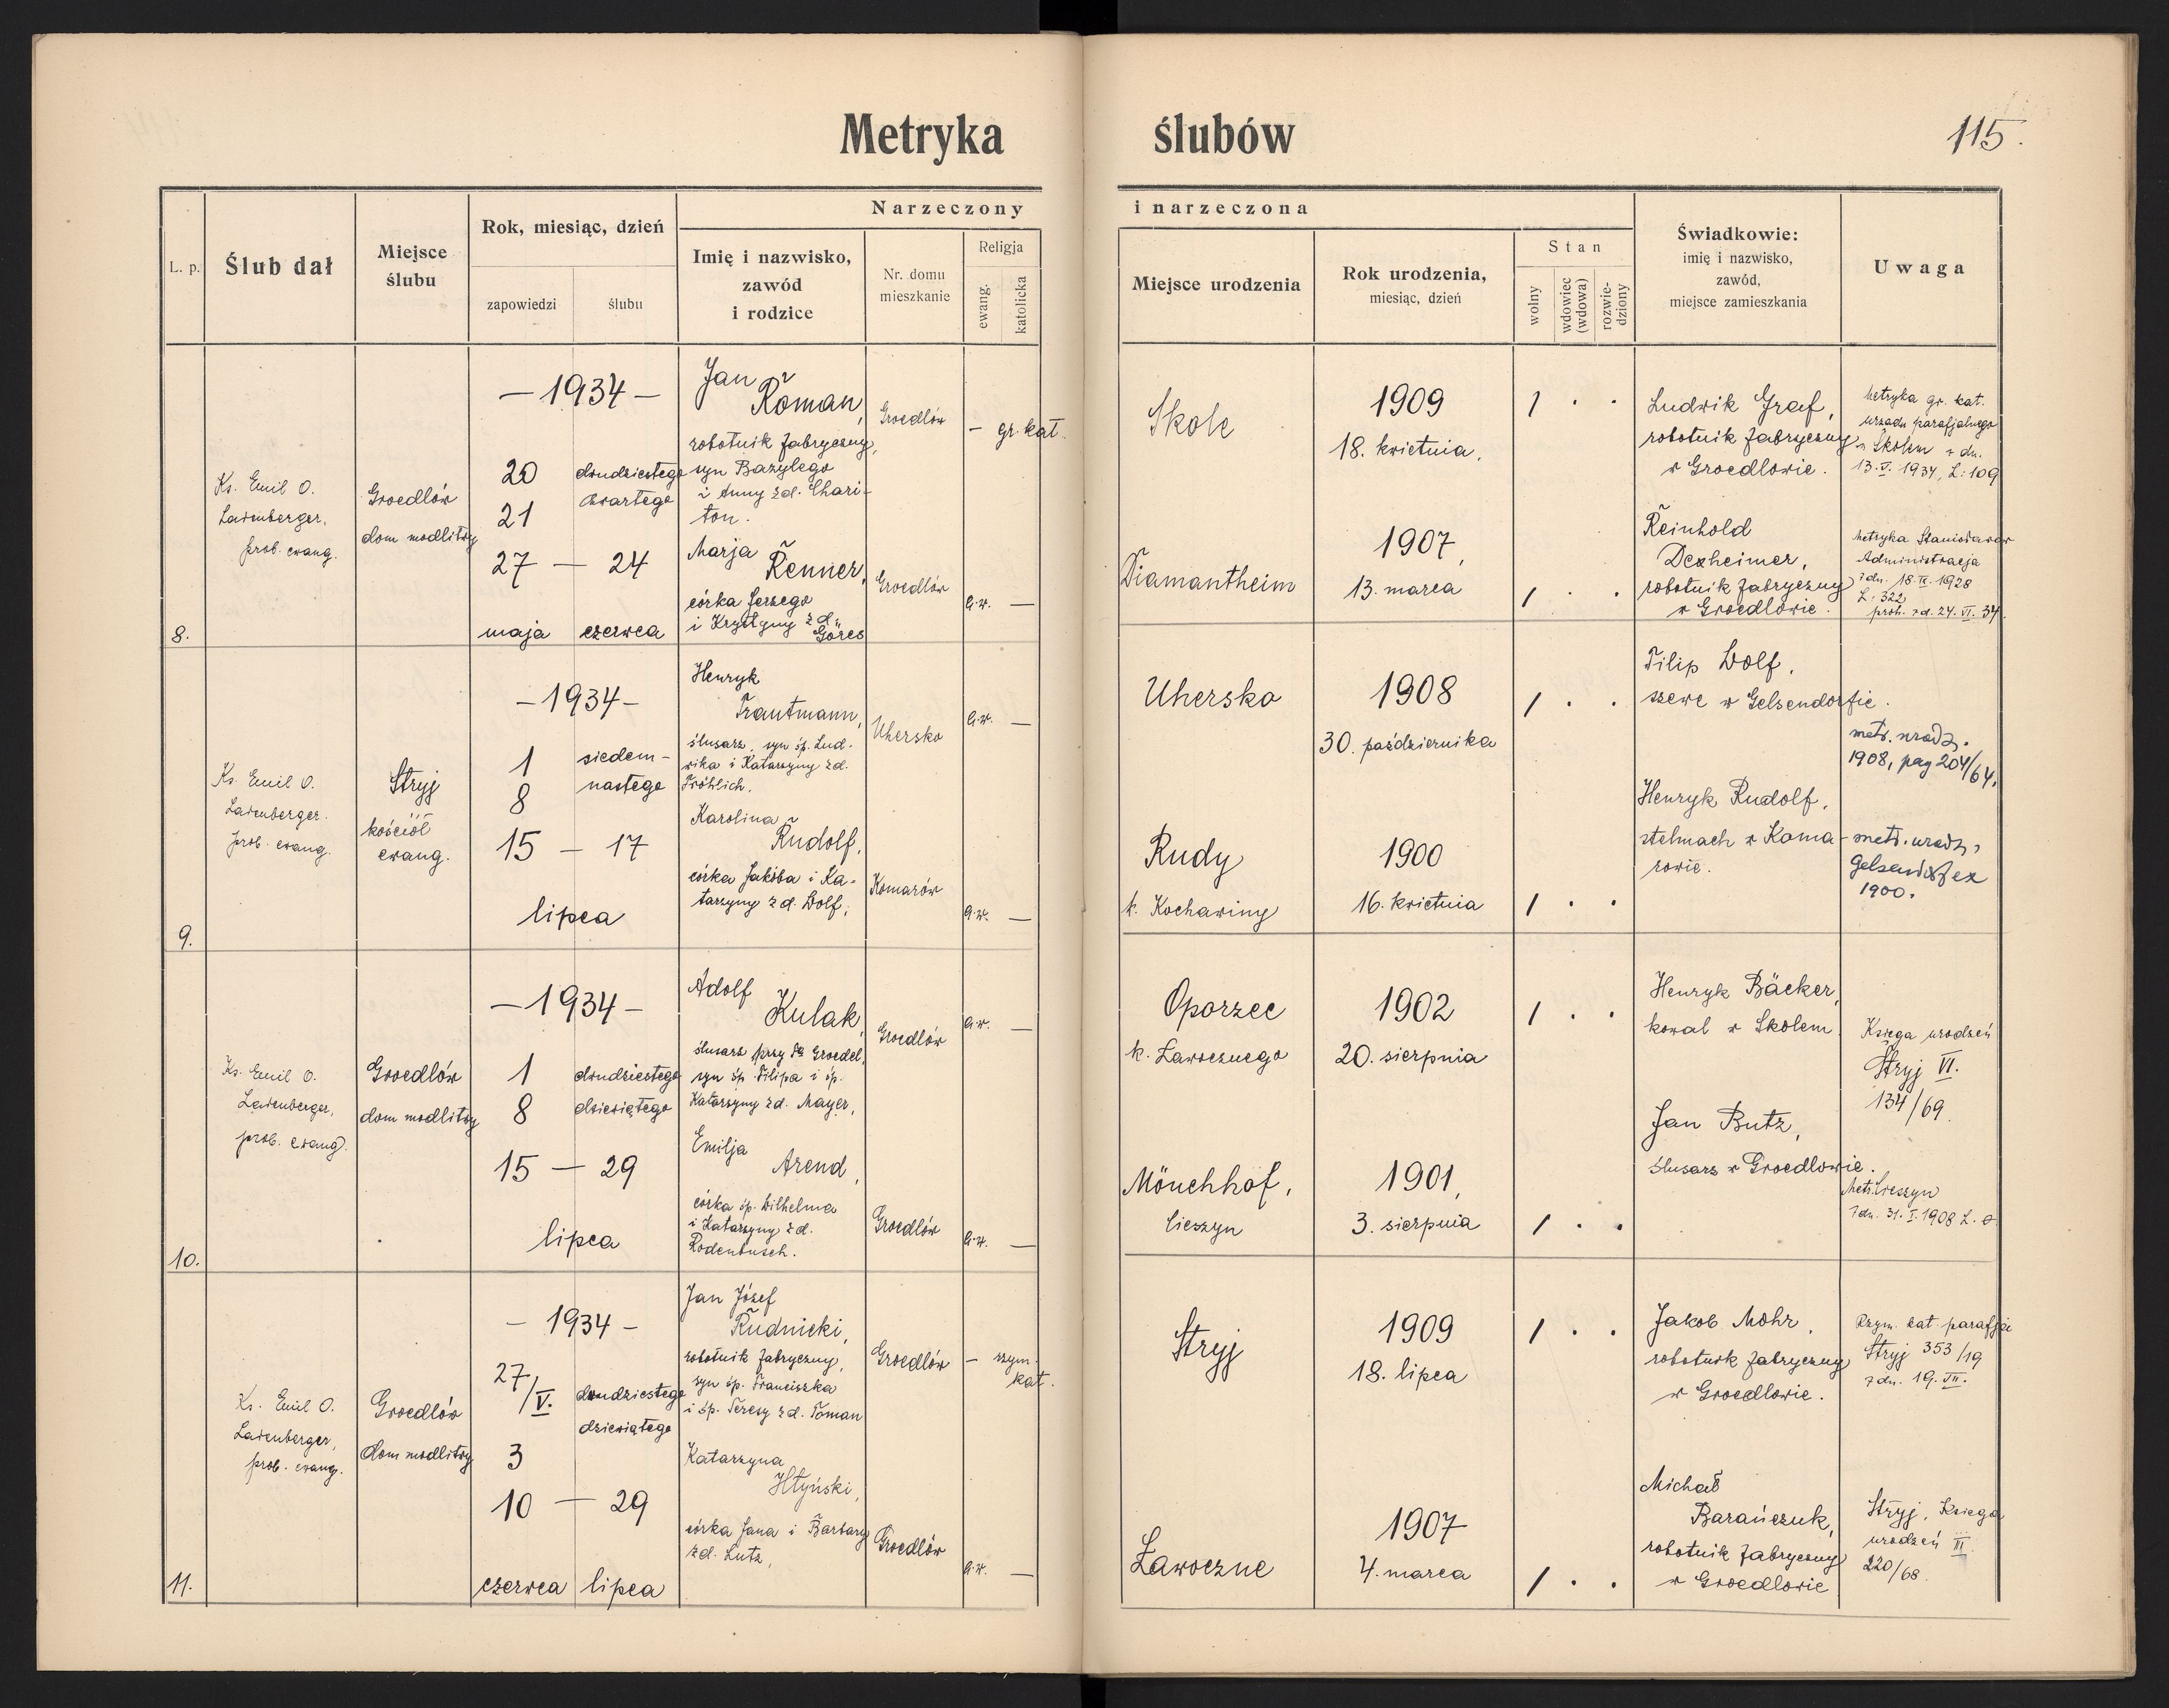 Metryka ślubów
115.
L. p.
Ślub dał
Miejsce
ślubu
Rok, miesiąc, dzień
zapowiedzi
ślubu
Narzeczony i narzeczona
Imię i nazwisko,
zawód
i rodzice
Nr. domu
mieszkanie
Religja
ewang.
katolicka
Miejsce urodzenia
Rok urodzenia,
miesiąc, dzień
Stan
wolny
wdowiec
(wdowa)
rozwie-
dziony
Świadkowie:
imię i nazwisko,
zawód,
miejsce zamieszkania
Uwaga
8.
Ks. Emil O.
Ladenberger,
prob. ewang.
Groedlów
dom modlitwy
— 1934 —
20
21
27 — 24
maja
dwudziestego
czwartego
czerwca
Jan
Roman,
robotnik fabryczny,
syn Bazylego
i Anny zd. Chari-
ton.
Groedlów
— gr. kat.
Marja
Renner,
córka Jerzego
i Krystyny zd.
Göres
Groedlów
a.w. —
Skole
1909
18. kwietnia.
1 . .
Diamantheim
1907,
13. marca
1 . .
Ludwik Graf,
robotnik fabryczny
w Groedlowie.
Reinhold
Dexheimer,
robotnik fabryczny
w Groedlowie.
Metryka gr. kat.
urzędu parafjalnego
w Skolem z dn.
13. V. 1934, L: 109
Metryka Stanisławów
Administracja
z dn. 18. IX. 1928
L: 322
prob. z d. 24. VI. 34.
9.
Ks. Emil O.
Ladenberger.
prob. ewang.
Stryj
kościół
ewang.
— 1934 —
1
8
15 — 17
lipca
siedem-
nastego
Henryk
Trautmann,
ślusarz, syn śp. Lud-
wika i Katarzyny zd.
Fröhlich.
Uhersko
a.w. —
Karolina
Rudolf,
córka Jakóba i Ka-
tarzyny zd. Wolf,
Komarów
a.w. —
Uhersko
1908
30. października
1 . .
Rudy
k. Kochawiny
1900
16. kwietnia
1 . .
Filip Wolf,
szewc w Gelsendorfie.
Henryk Rudolf,
stelmach w Koma-
rowie.
metr. urodz.
1908, pag 204/64.
metr. urodz.
1900.
10.
Ks. Emil O.
Ladenberger,
prob. ewang.
Groedlów
dom modlitwy
— 1934 —
1
8
15 — 29
lipca
dwudziestego
dziewiątego
Adolf
Kulak,
ślusarz przy Fa Groedel,
syn śp. Filipa i śp.
Katarzyny zd. Mayer,
Groedlów
a.w. —
Emilja
Arend,
córka śp. Wilhelma
i Katarzyny zd.
Rodenbusch.
Groedlów
a.w. —
Oporzec
k. Ławocznego
1902
20. sierpnia
1 . .
Mönchhof,
Cieszyn
1901,
3. sierpnia
1 . .
Henryk Bäcker,
kowal w Skolem
Jan Butz,
ślusarz w Groedlowie.
Księga urodzeń
Stryj VI.
134/69.
Metr. Cieszyn
z dn. 31. I. 1908
11.
Ks. Emil O.
Ladenberger,
prob. ewang.
Groedlów
dom modlitwy
— 1934 —
27/V.
3
10 — 29
czerwca
dwudziestego
dziewiątego
lipca
Jan Józef
Rudnicki,
robotnik fabryczny,
syn śp. Franciszka
i śp. Teresy zd. Toman
Groedlów
— rzym.
kat.
Katarzyna
Hłyński,
córka Jana i Barbary
zd. Lutz,
Groedlów
a.w. —
Stryj
1909
18. lipca
1 . .
Ławoczne
1907
4. marca
1 . .
Jakob Mohr,
robotnik fabryczny
w Groedlowie.
Michał
Barańczuk,
robotnik fabryczny
w Groedlowie
Rzym. kat. parafja
Stryj 353/19
z dn. 19.
Stryj, Księga
urodzeń
220/68.